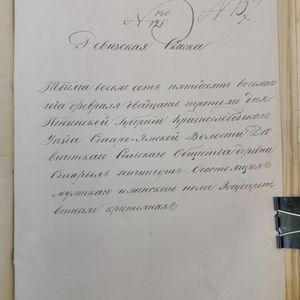 Ревизская Сказка
Тысяча восемь сотъ пятьдесятъ восьмаго
года февраля двадцать третьяго дня
Пензенской Губерніи Краснослободскаго
Уѣзда Старо-Ямской Волости Дѣ
вичевскаго Сельскаго Общества деревни
Старыхъ Пичингушъ О состоящихъ
мужескаго и женскаго пола Государст
венныхъ крестьянахъ